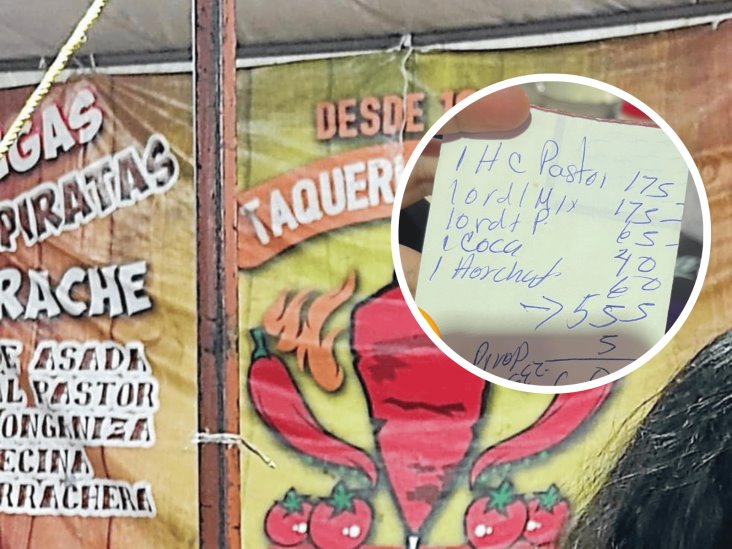 GAS
PIRATAS
RACHE
DE ASADA
AL PASTOR
ONGANIZA
ECINA
RRACHERA
DESDE
TAQUER
1 H C Pastor 175
1 ord 1 Mix 175
1 ord + P. 65
1 Coca 40
1 Horchat 60
→ 555
5
Prop